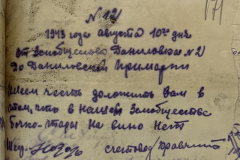 171
№ 121
1943 года августа 10го дня
От Земобщества Даниловка № 2
До Даниловской Примарии
Имеем честь доложить Вам в
том, что в нашем Земобществе
бочко-тары на вино нет
счетовод правлений